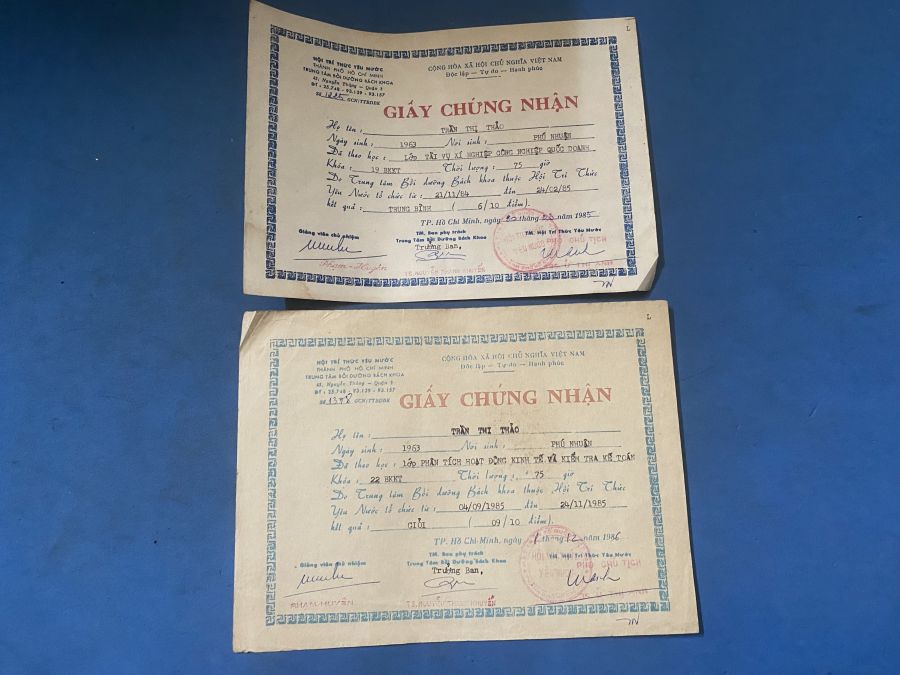 L
HỘI TRÍ THỨC YÊU NƯỚC
THÀNH PHỐ HỒ CHÍ MINH
TRUNG TÂM BỒI DƯỠNG BÁCH KHOA
43, Nguyễn Thông - Quận 3
ĐT : 25.748 - 93.139 - 93.157
Số 1225 GCN/TTBDBK
CỘNG HÒA XÃ HỘI CHỦ NGHĨA VIỆT NAM
Độc lập - Tự do - Hạnh phúc
GIẤY CHỨNG NHẬN
Họ tên : TRẦN THỊ THẢO
Ngày sinh : 1963 Nơi sinh : PHÚ NHUẬN
Đã theo học : LỚP TÀI VỤ XÍ NGHIỆP CÔNG NGHIỆP QUỐC DOANH
Khóa : 19 BKKT Thời lượng : 75 giờ
Do Trung tâm Bồi dưỡng Bách khoa thuộc Hội Trí Thức
Yêu Nước tổ chức từ : 21/11/84 đến 24/02/85
kết quả : TRUNG BÌNH ( 6/10 điểm).
TP. Hồ Chí Minh, ngày tháng năm 1985
Giảng viên chủ nhiệm
TM. Ban phụ trách
Trung Tâm Bồi Dưỡng Bách Khoa
Trưởng Ban,
TM. Hội Trí Thức Yêu Nước
PHÓ CHỦ TỊCH
Phạm - Huyền
TS. NGUYỄN THANH KHUYẾN
L
HỘI TRÍ THỨC YÊU NƯỚC
THÀNH PHỐ HỒ CHÍ MINH
TRUNG TÂM BỒI DƯỠNG BÁCH KHOA
43, Nguyễn Thông - Quận 3
ĐT : 25.748 - 93.139 - 93.157
Số 1398 GCN/TTBDBK
CỘNG HÒA XÃ HỘI CHỦ NGHĨA VIỆT NAM
Độc lập - Tự do - Hạnh phúc
GIẤY CHỨNG NHẬN
Họ tên : TRẦN THỊ THẢO
Ngày sinh : 1963 Nơi sinh : PHÚ NHUẬN
Đã theo học : LỚP PHÂN TÍCH HOẠT ĐỘNG KINH TẾ VÀ KIỂM TRA KẾ TOÁN
Khóa : 22 BKKT Thời lượng : 75 giờ
Do Trung tâm Bồi dưỡng Bách khoa thuộc Hội Trí Thức
Yêu Nước tổ chức từ : 04/09/1985 đến 24/11/1985
kết quả : GIỎI ( 09/10 điểm).
TP. Hồ Chí Minh, ngày 1 tháng 12 năm 1986
Giảng viên chủ nhiệm
TM. Ban phụ trách
Trung Tâm Bồi Dưỡng Bách Khoa
Trưởng Ban,
TM. Hội Trí Thức Yêu Nước
PHÓ CHỦ TỊCH
PHẠM-HUYỀN
TS. NGUYỄN THANH KHUYẾN